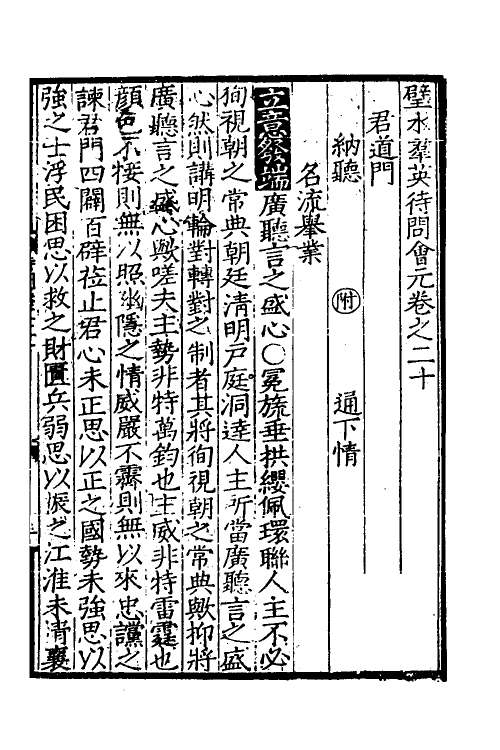 璧水羣英待問會元卷之二十
君道門
納聽 附 通下情
名流舉業
立意發端廣聽言之盛心○冕旒垂拱纓佩環聯人主不必
徇視朝之常典朝廷清明戶庭洞達人主所當廣聽言之盛
心然則講明輪對轉對之制者其將徇視朝之常典歟抑將
廣聽言之盛心歟嗟夫主勢非特萬鈞也主威非特雷霆也
顔色不接則無以照幽隱之情威嚴不霽則無以來忠讜之
諫君門四闢百辟莅止君心未正思以正之國勢未強思以
強之士浮民困思以救之財匱兵弱思以振之江淮未清襄